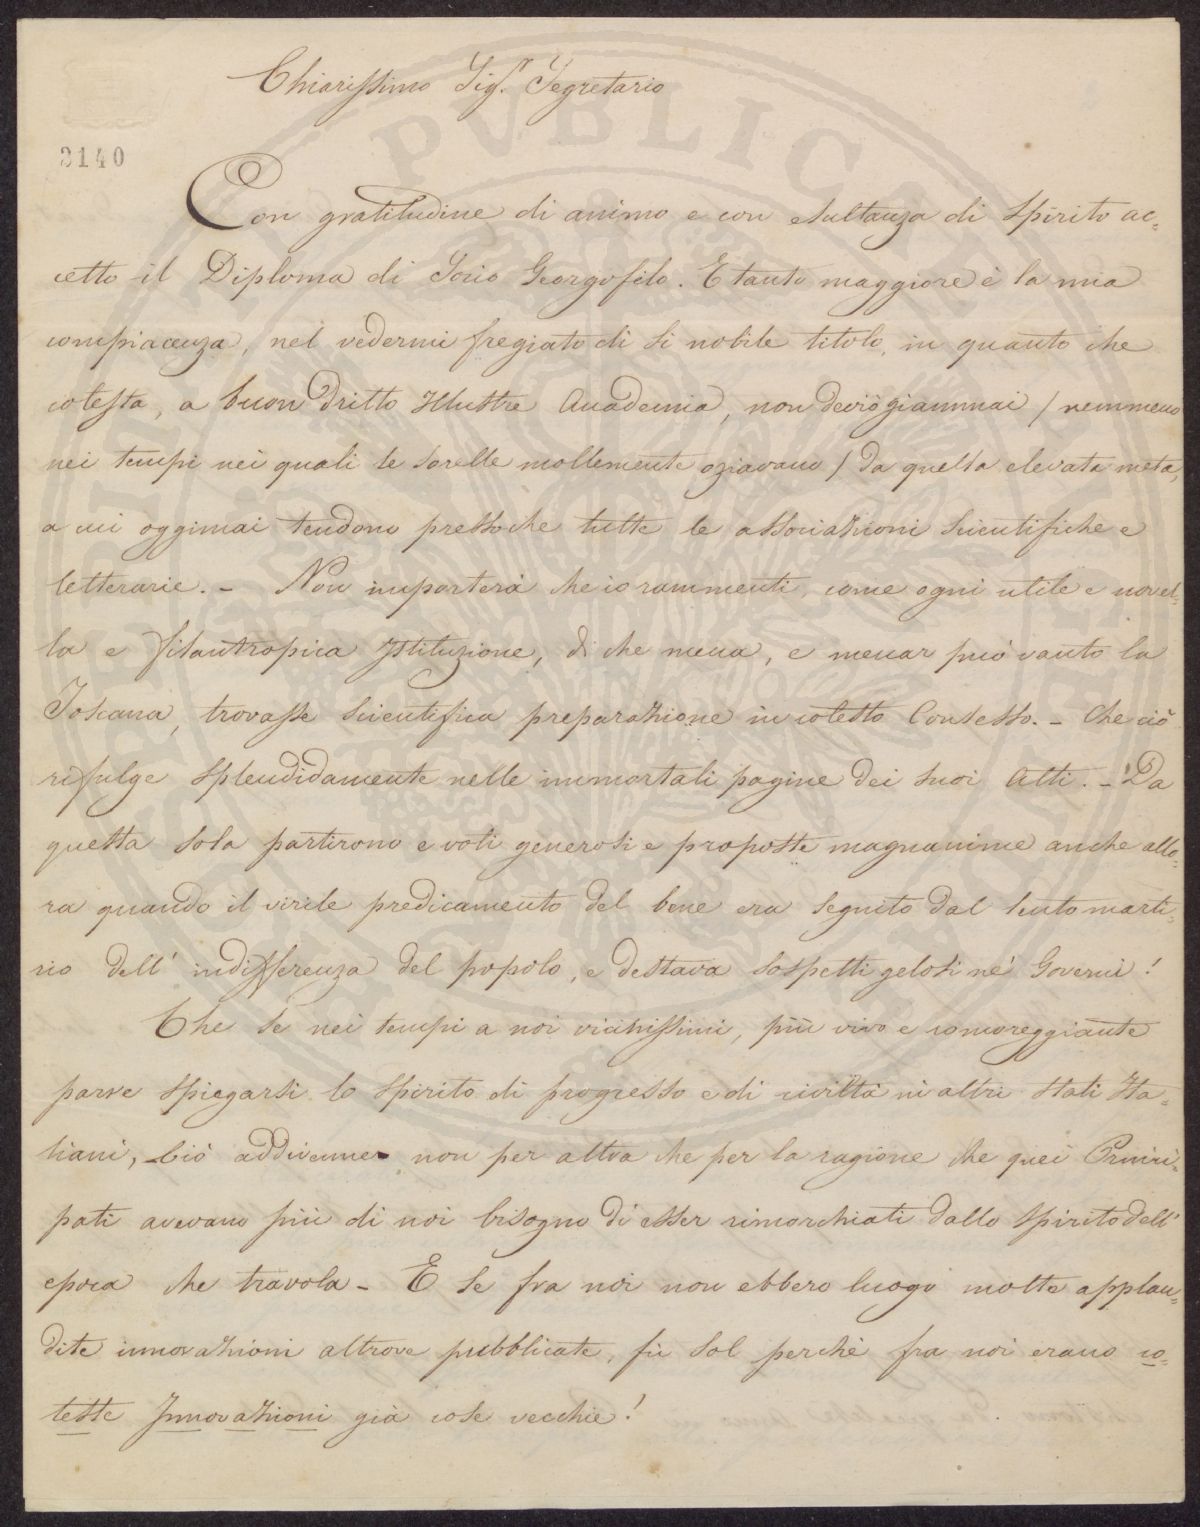 Chiarissimo Sig.r Segretario
2140
Con gratitudine di animo e con esultanza di spirito ac=
cetto il Diploma di Socio Georgofilo. E tanto maggiore è la mia
compiacenza, nel vedermi fregiato di sì nobile titolo, in quanto che
cotesta, a buon dritto Illustre Accademia, non deviò giammai / nemmeno
nei tempi nei quali le sorelle mollemente oziavano / da quella elevata meta,
a cui oggimai tendono pressoche tutte le associazioni scientifiche e
letterarie. - Non importerà che io rammenti, come ogni utile e novel=
la e filantropica Istituzione, di che mena, e menar può vanto la
Toscana, trovasse scientifica preparazione in cotesto Consesso. - Che ciò
rifulge splendidamente nelle immortali pagine dei suoi Atti. - Da
questa sola partirono e voti generosi e proposte magnanime anche allo=
ra quando il virile predicamento del bene era seguito dal lento marti=
rio dell' indifferenza del popolo, e destava sospetti gelosi ne' Governi!
Che se nei tempi a noi vicinissimi, più vivo e romoreggiante
parve spiegarsi lo spirito di progresso e di civiltà in altri stati Ita=
liani, ciò addivenne non per altra che per la ragione che quei Princi=
pati avevano più di noi bisogno di esser rimorchiati dallo spirito dell'
epoca che travola - E se fra noi non ebbero luogo molte applau=
dite innovazioni altrove pubblicate, fù sol perchè fra noi erano co=
teste Innovazioni già cose vecchie!
PUBLICA